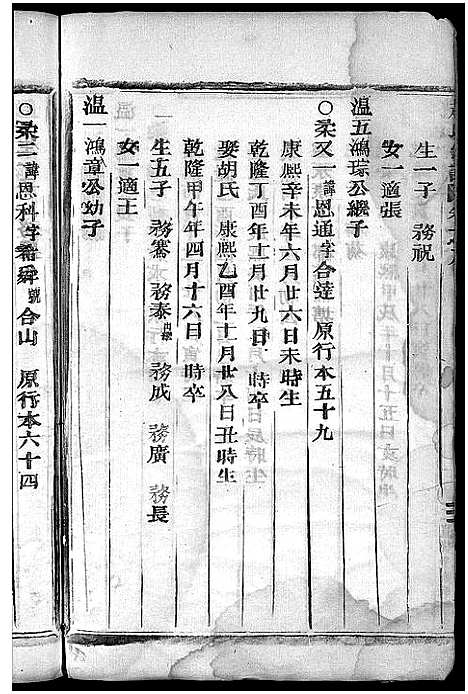 生一子 務祝
女一適張
温五鴻琮公繼子
○柔又一諱恩通字合達 原行本五十九
康熙辛未年六月廿六日未時生
乾隆丁酉年十一月廿九日 時卒
娶胡氏 康熙乙酉年十一月廿八日丑時生
乾隆甲午年四月十六日 時卒
生五子 務騫 務泰出繼 務成 務廣 務長
女一適王
温一鴻章公幼子
○柔三諱恩科字希舜號合山 原行本六十四